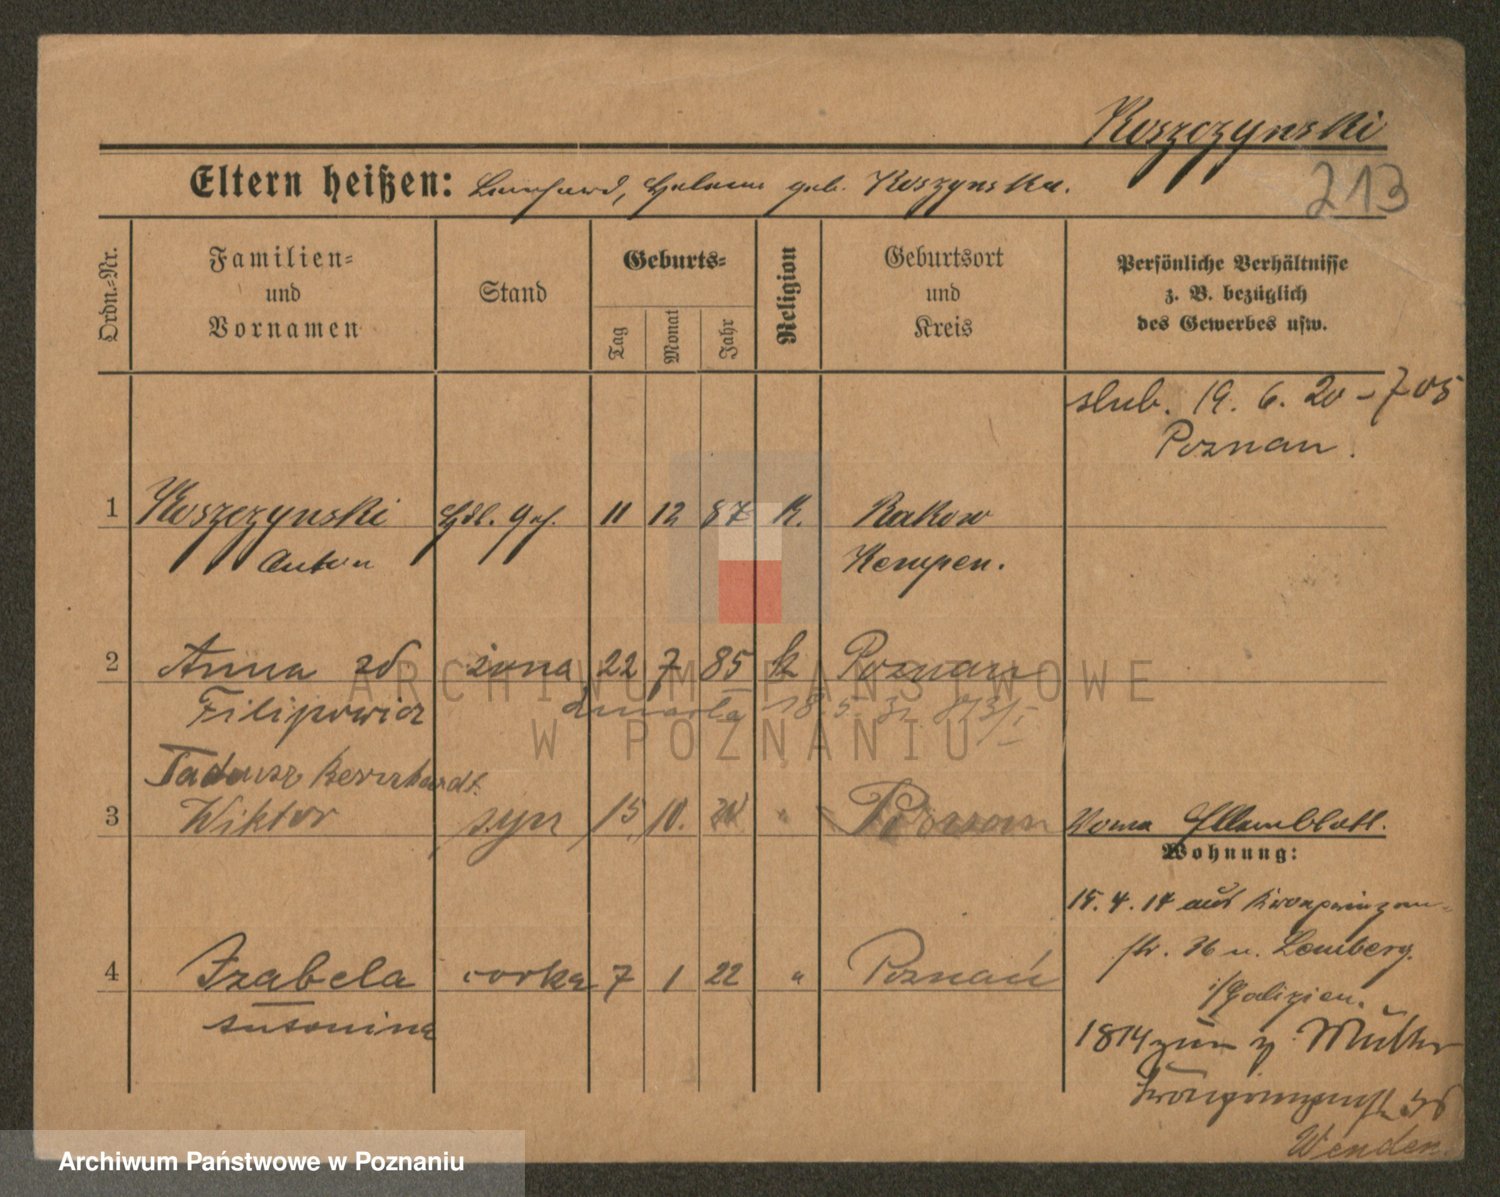 Koszczynski
213
Eltern heißen: geb. Koszynska.
Ordn.-Nr.
Familien-
und
Vornamen
Stand
Geburts-
Tag
Monat
Jahr
Religion
Geburtsort
und
Kreis
Persönliche Verhältnisse
z. B. bezüglich
des Gewerbes usw.
slub. 19. 6. 20 - 705
Poznan.
1 Koszczynski Hdl. Geh. 11 12 87 K. Rakow
Anton Kempen.
2 Anna zd żona 22 7 85 k Poznan
Filipowicz zmarła 18 5 31 873/I
Tadeusz Bernhardt
3 Wiktor syn 15 10. 20 " Poznan Voma
Wohnung:
15. 4. 14 aus Kronprinzen-
str. 36 u. Lemberg
i/Galizien.
4 Izabela corka 7 1 22 " Poznań
Antonina
1814 zum
Wenden
ARCHIWUM PAŃSTWOWE
W POZNANIU
Archiwum Państwowe w Poznaniu